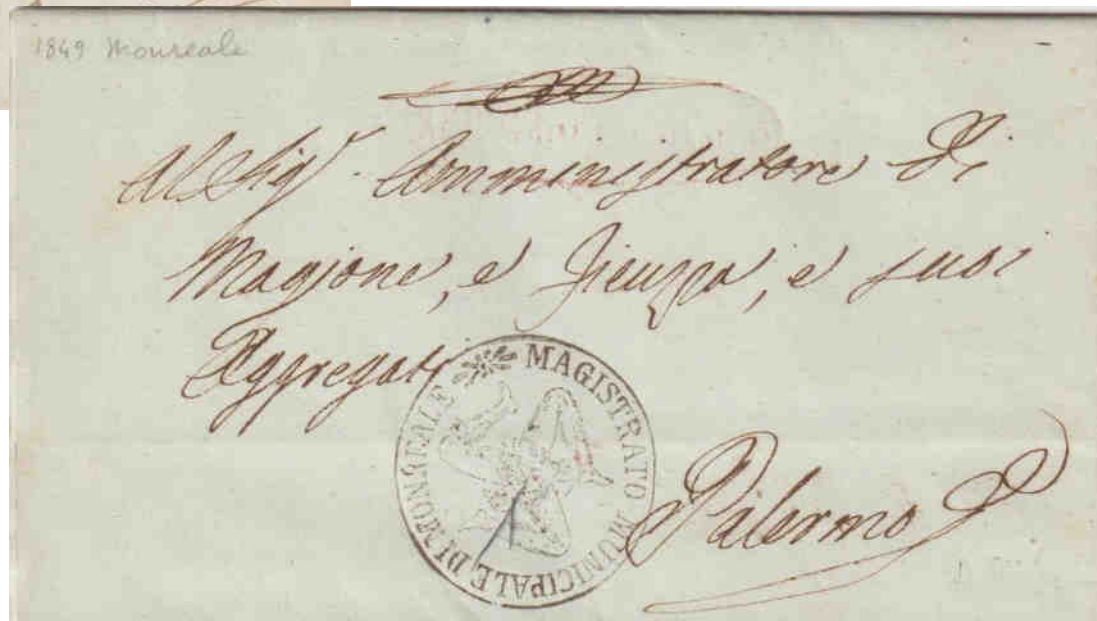 1849 Monreale
Al Sig.r Amministratore di
Magione, e Ficuzza, e suoi
Aggregati
MAGISTRATO MUNICIPALE DI MONREALE
Palermo